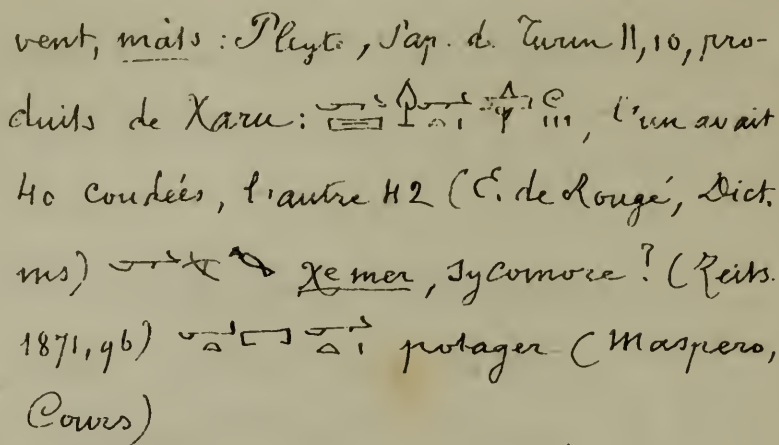 vent, mâts : Pleyte, Pap. d. Turin II, 10, pro-
duits de Xaru : , l'un avait
40 coudées, l'autre 42 (E. de Rougé, Dict.
ms) χe mer, sycomore ? (Zeits.
1871, 96) potager (Maspero,
Cours)